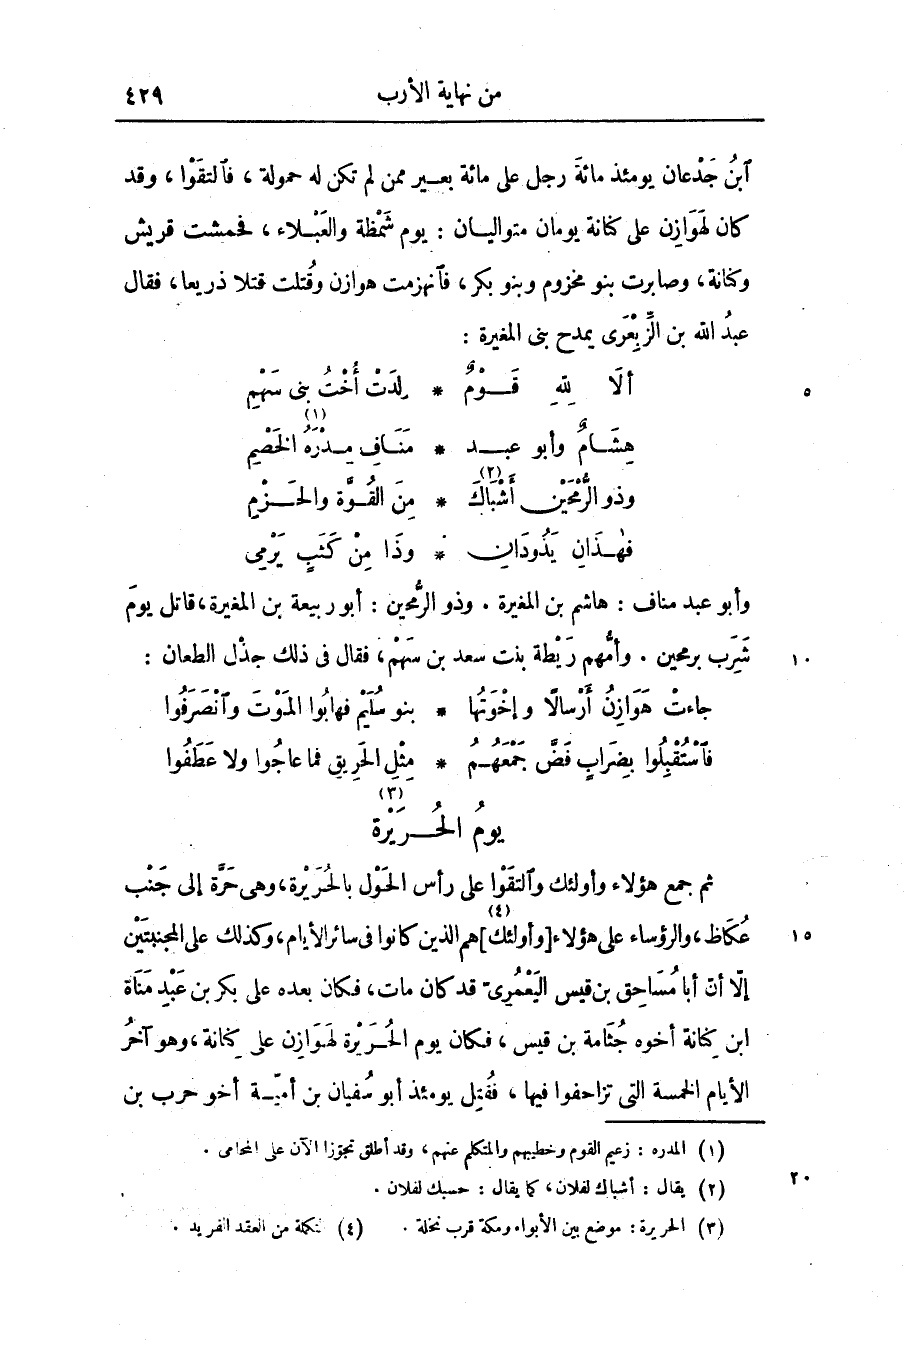 من نهاية الأرب ٤٢٩
ٱبنُ جَدْعان يومئذ مائةَ رجل على مائة بعـير ممن لم تكن له حمولة ، فٱلتقَوْا ، وقد
كان لهَوَازِن على كنانة يومان متواليـان : يوم شَمْظة والعَبْـلاء ، فحمشت قريش
وكنانة ، وصابرت بنو مخزوم وبنو بكر ، فٱنهزمت هوازن وقُتلت قتلا ذريعا ، فقال
عبدُ الله بن الزِّبِعْرَى يمدح بنى المغيرة :
ألَا لِلهِ قَــوْمٌ * وَلدَتْ أُخْتُ بنى سَهْمِ ٥
هِشَـامٌ وأبو عبــد * مَنَـافٍ مِـدْرَهُ الخَصْمِ (١)
وذو الرُّمْحَيْنِ أَشْبَاكَ (٢) * مِنَ القُـوَّة والحَــزْمِ
فهٰـذَانِ يَذُودَانِ * وذَا مِنْ كَثَبٍ يَرْمِى
وأبو عبد مناف : هاشم بن المغيرة . وذو الرُّمحين : أبو ربيعة بن المغيرة ، قاتل يومَ
شَرِب برمحين . وأمُّهم رَيْطة بنت سعد بن سَهْم ، فقال فى ذلك جذْل الطعان : ١٠
جاءتْ هَوَازِنُ أَرْسالًا وإخْوَتُها * بنو سُلَيْم فهابُوا المَوْتَ وٱنْصَرَفُوا
فٱسْتُقْبِلُوا بِضِرَابٍ فَضَّ جَمْعَهُـمُ * مِثْلِ الحَرِيقِ فما عاجُوا ولا عَطَفُوا
يومُ الحُــرَيْرة (٣)
ثم جمع هؤلاء وأولئك وٱلتقَوْا على رأس الحَوْل بالحُرَيْرة ، وهى حَرَّة إلى جَنْب
عُكَاظ ، والرؤساء على هؤلاء [وأولئك] (٤) هم الذين كانوا فى سائر الأيام ، وكذلك على المجنبتَيْن ١٥
إلّا أنّ أبا مُسَاحِق بن قيس اليَعْمُرِىّ قد كان مات ، فكان بعده على بكر بن عَبْدِ مَنَاة
ابن كِنانة أخوه جُثَامة بن قيس ، فـكان يوم الحُـرَيْرة لهَوَازِن على كِنانة ، وهو آخرُ
الأيام الخمسة التى تزاحفوا فيها ، فقُتِل يومئذ أبو سُفيان بن أميّـة أخو حرب بن
(١) المدره : زعيم القوم وخطيبهم والمتكلم عنهم ، وقد أطلق تجوّزا الآن على المحامى .
(٢) يقال : أشباك لفلان ، كما يقال : حسبك لفلان . ٢٠
(٣) الحريرة : موضع بين الأبواء ومكة قرب نخلة . (٤) تكملة من العقد الفريد .